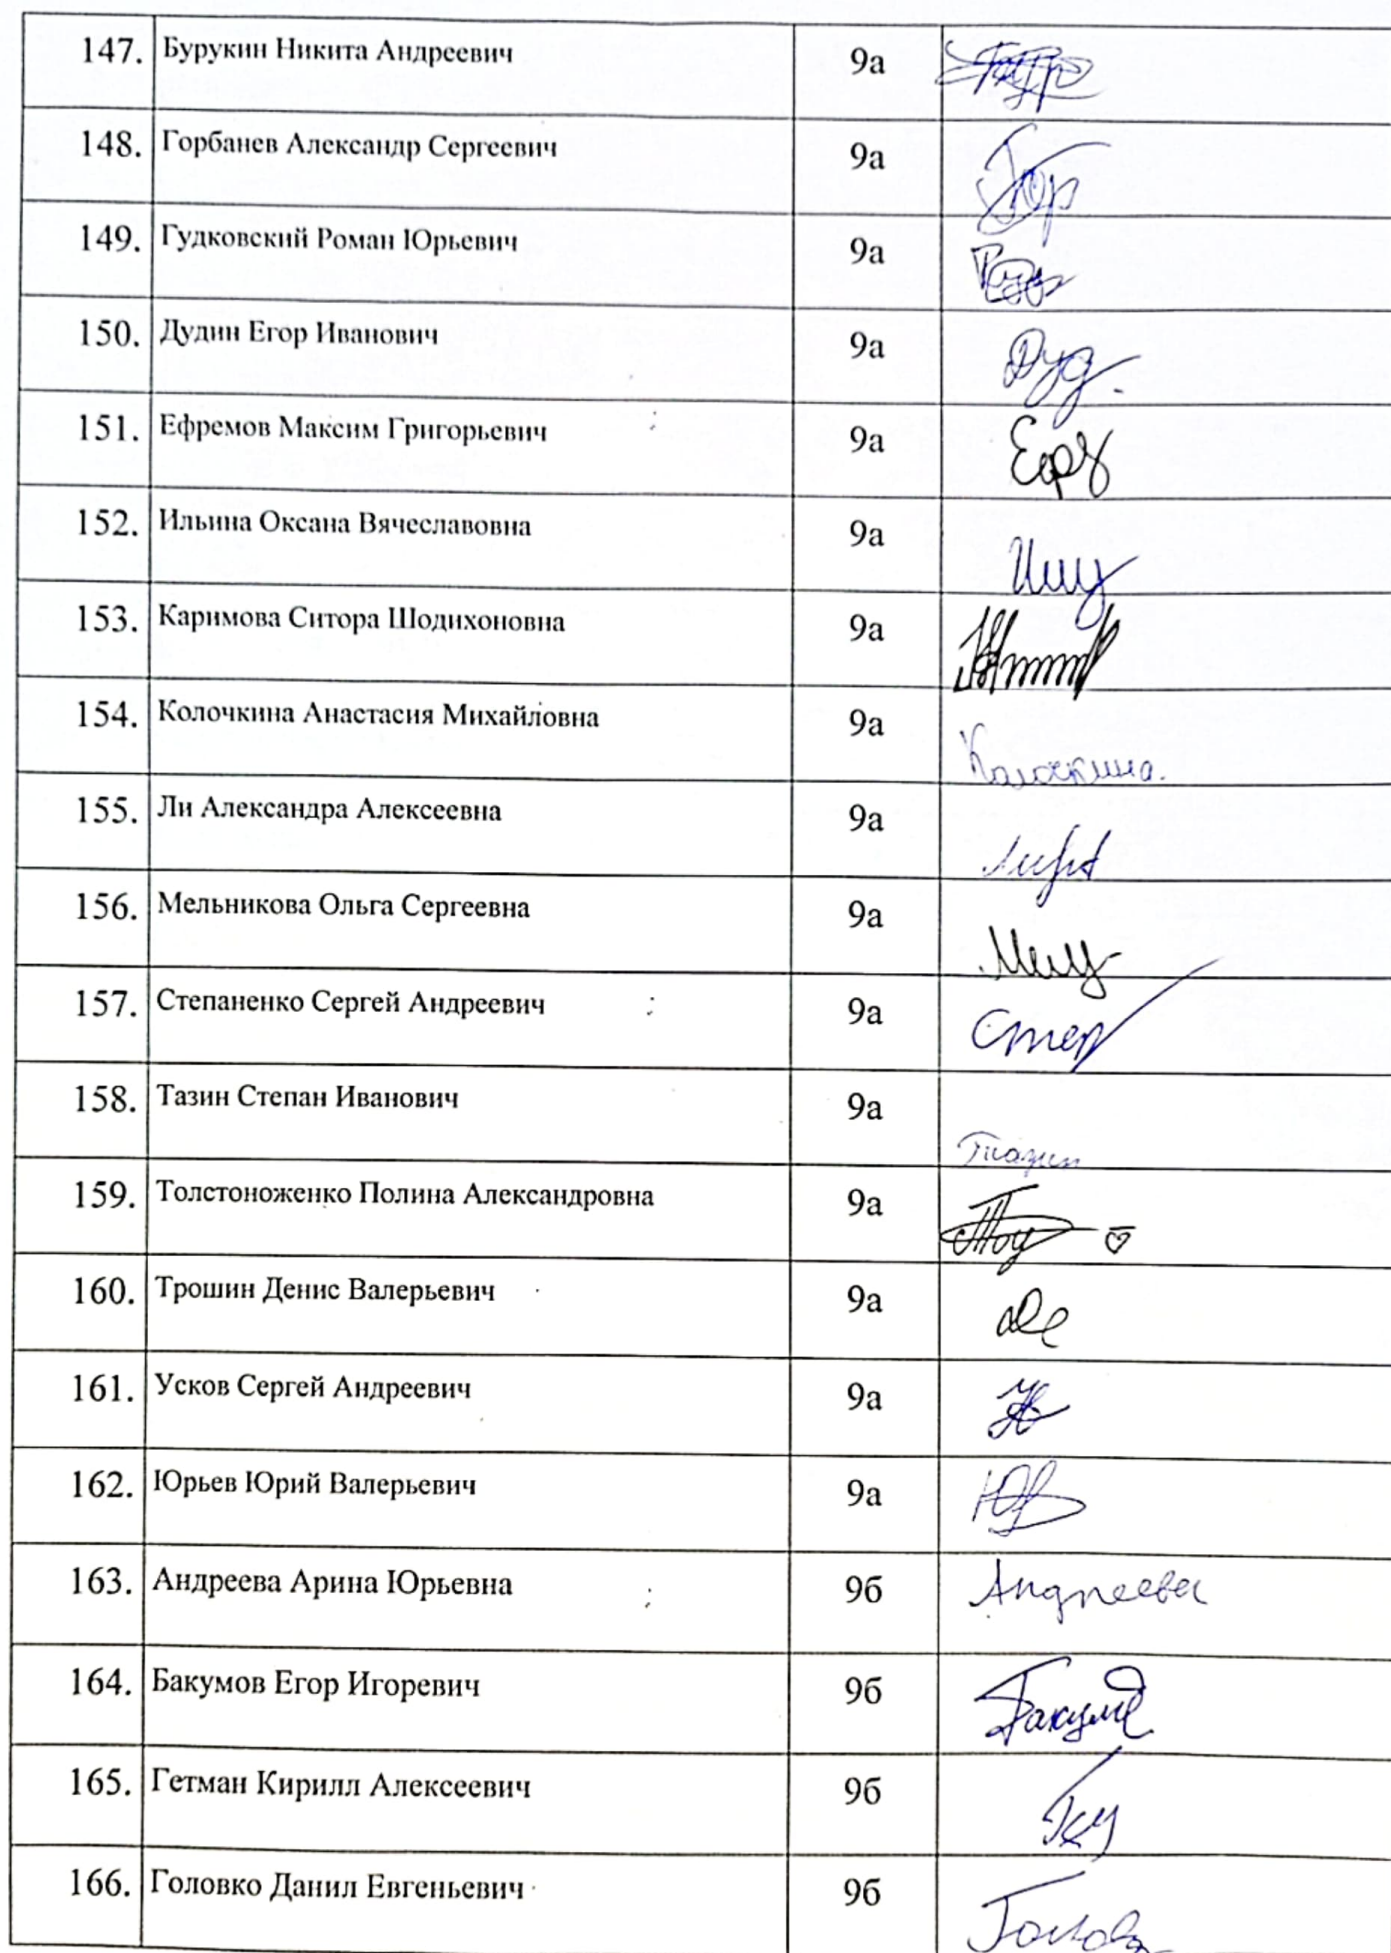 147. Бурукин Никита Андреевич 9а
148. Горбанев Александр Сергеевич 9а
149. Гудковский Роман Юрьевич 9а
150. Дудин Егор Иванович 9а Дуд.
151. Ефремов Максим Григорьевич 9а
152. Ильина Оксана Вячеславовна 9а
153. Каримова Ситора Шодихоновна 9а
154. Колочкина Анастасия Михайловна 9а Колочкина.
155. Ли Александра Алексеевна 9а
156. Мельникова Ольга Сергеевна 9а
157. Степаненко Сергей Андреевич 9а Степ
158. Тазин Степан Иванович 9а Тазин
159. Толстоноженко Полина Александровна 9а
160. Трошин Денис Валерьевич 9а
161. Усков Сергей Андреевич 9а
162. Юрьев Юрий Валерьевич 9а
163. Андреева Арина Юрьевна 9б Андреева
164. Бакумов Егор Игоревич 9б
165. Гетман Кирилл Алексеевич 9б
166. Головко Данил Евгеньевич 9б